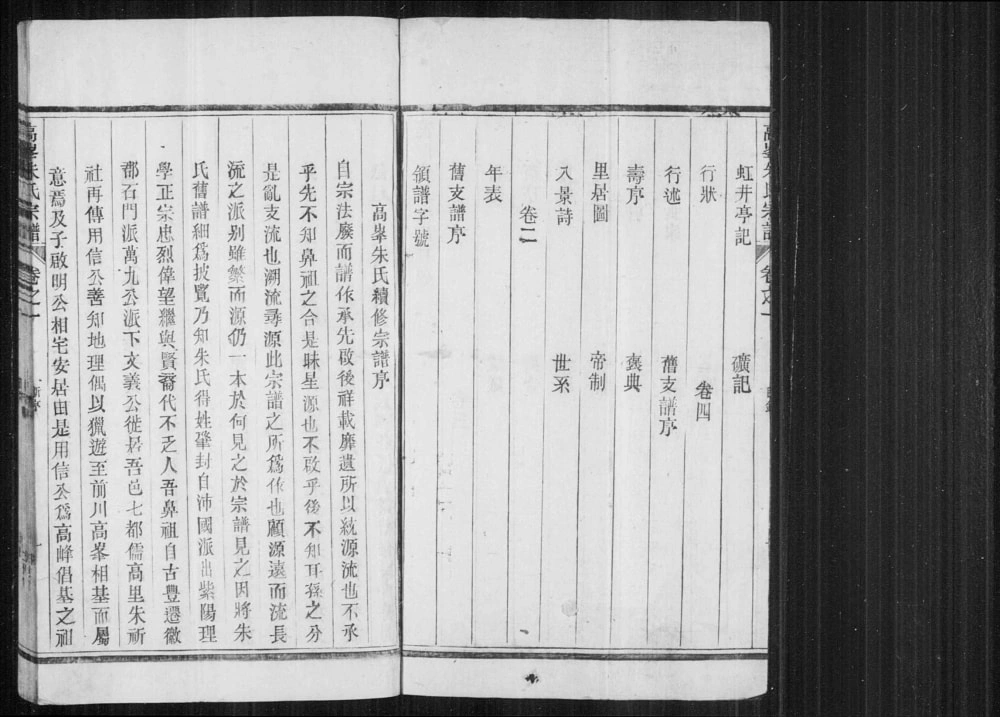 高峯朱氏宗譜
卷之一
虹井亭記
礦記
行狀
卷四
行述
舊支譜序
壽序
褒典
里居圖
帝制
八景詩
世系
卷二
年表
舊支譜序
領譜字號
高峯朱氏續修宗譜序
自宗法廢而譜作承先啟後祥載靡遺所以統源流也不承
乎先不知鼻祖之合是昧星源也不啟乎後不知耳孫之分
是亂支流也溯流尋源此宗譜之所爲作也顧源遠而流長
流之派别雖繁而源仍一本於何見之於宗譜見之因將朱
氏舊譜細爲披覽乃知朱氏得姓肇封自沛國派出紫陽理
學正宗忠烈偉望繼與賢裔代不乏人吾鼻祖自古豐遷徽
郡石門派萬九公派下文義公徙居吾邑七都儒高里朱祈
社再傳用信公善知地理偶以獵遊至前川高峯相基而屬
意焉及子啟明公相宅安居由是用信公爲高峰倡基之祖
高峯朱氏宗譜
卷之一
新序
一